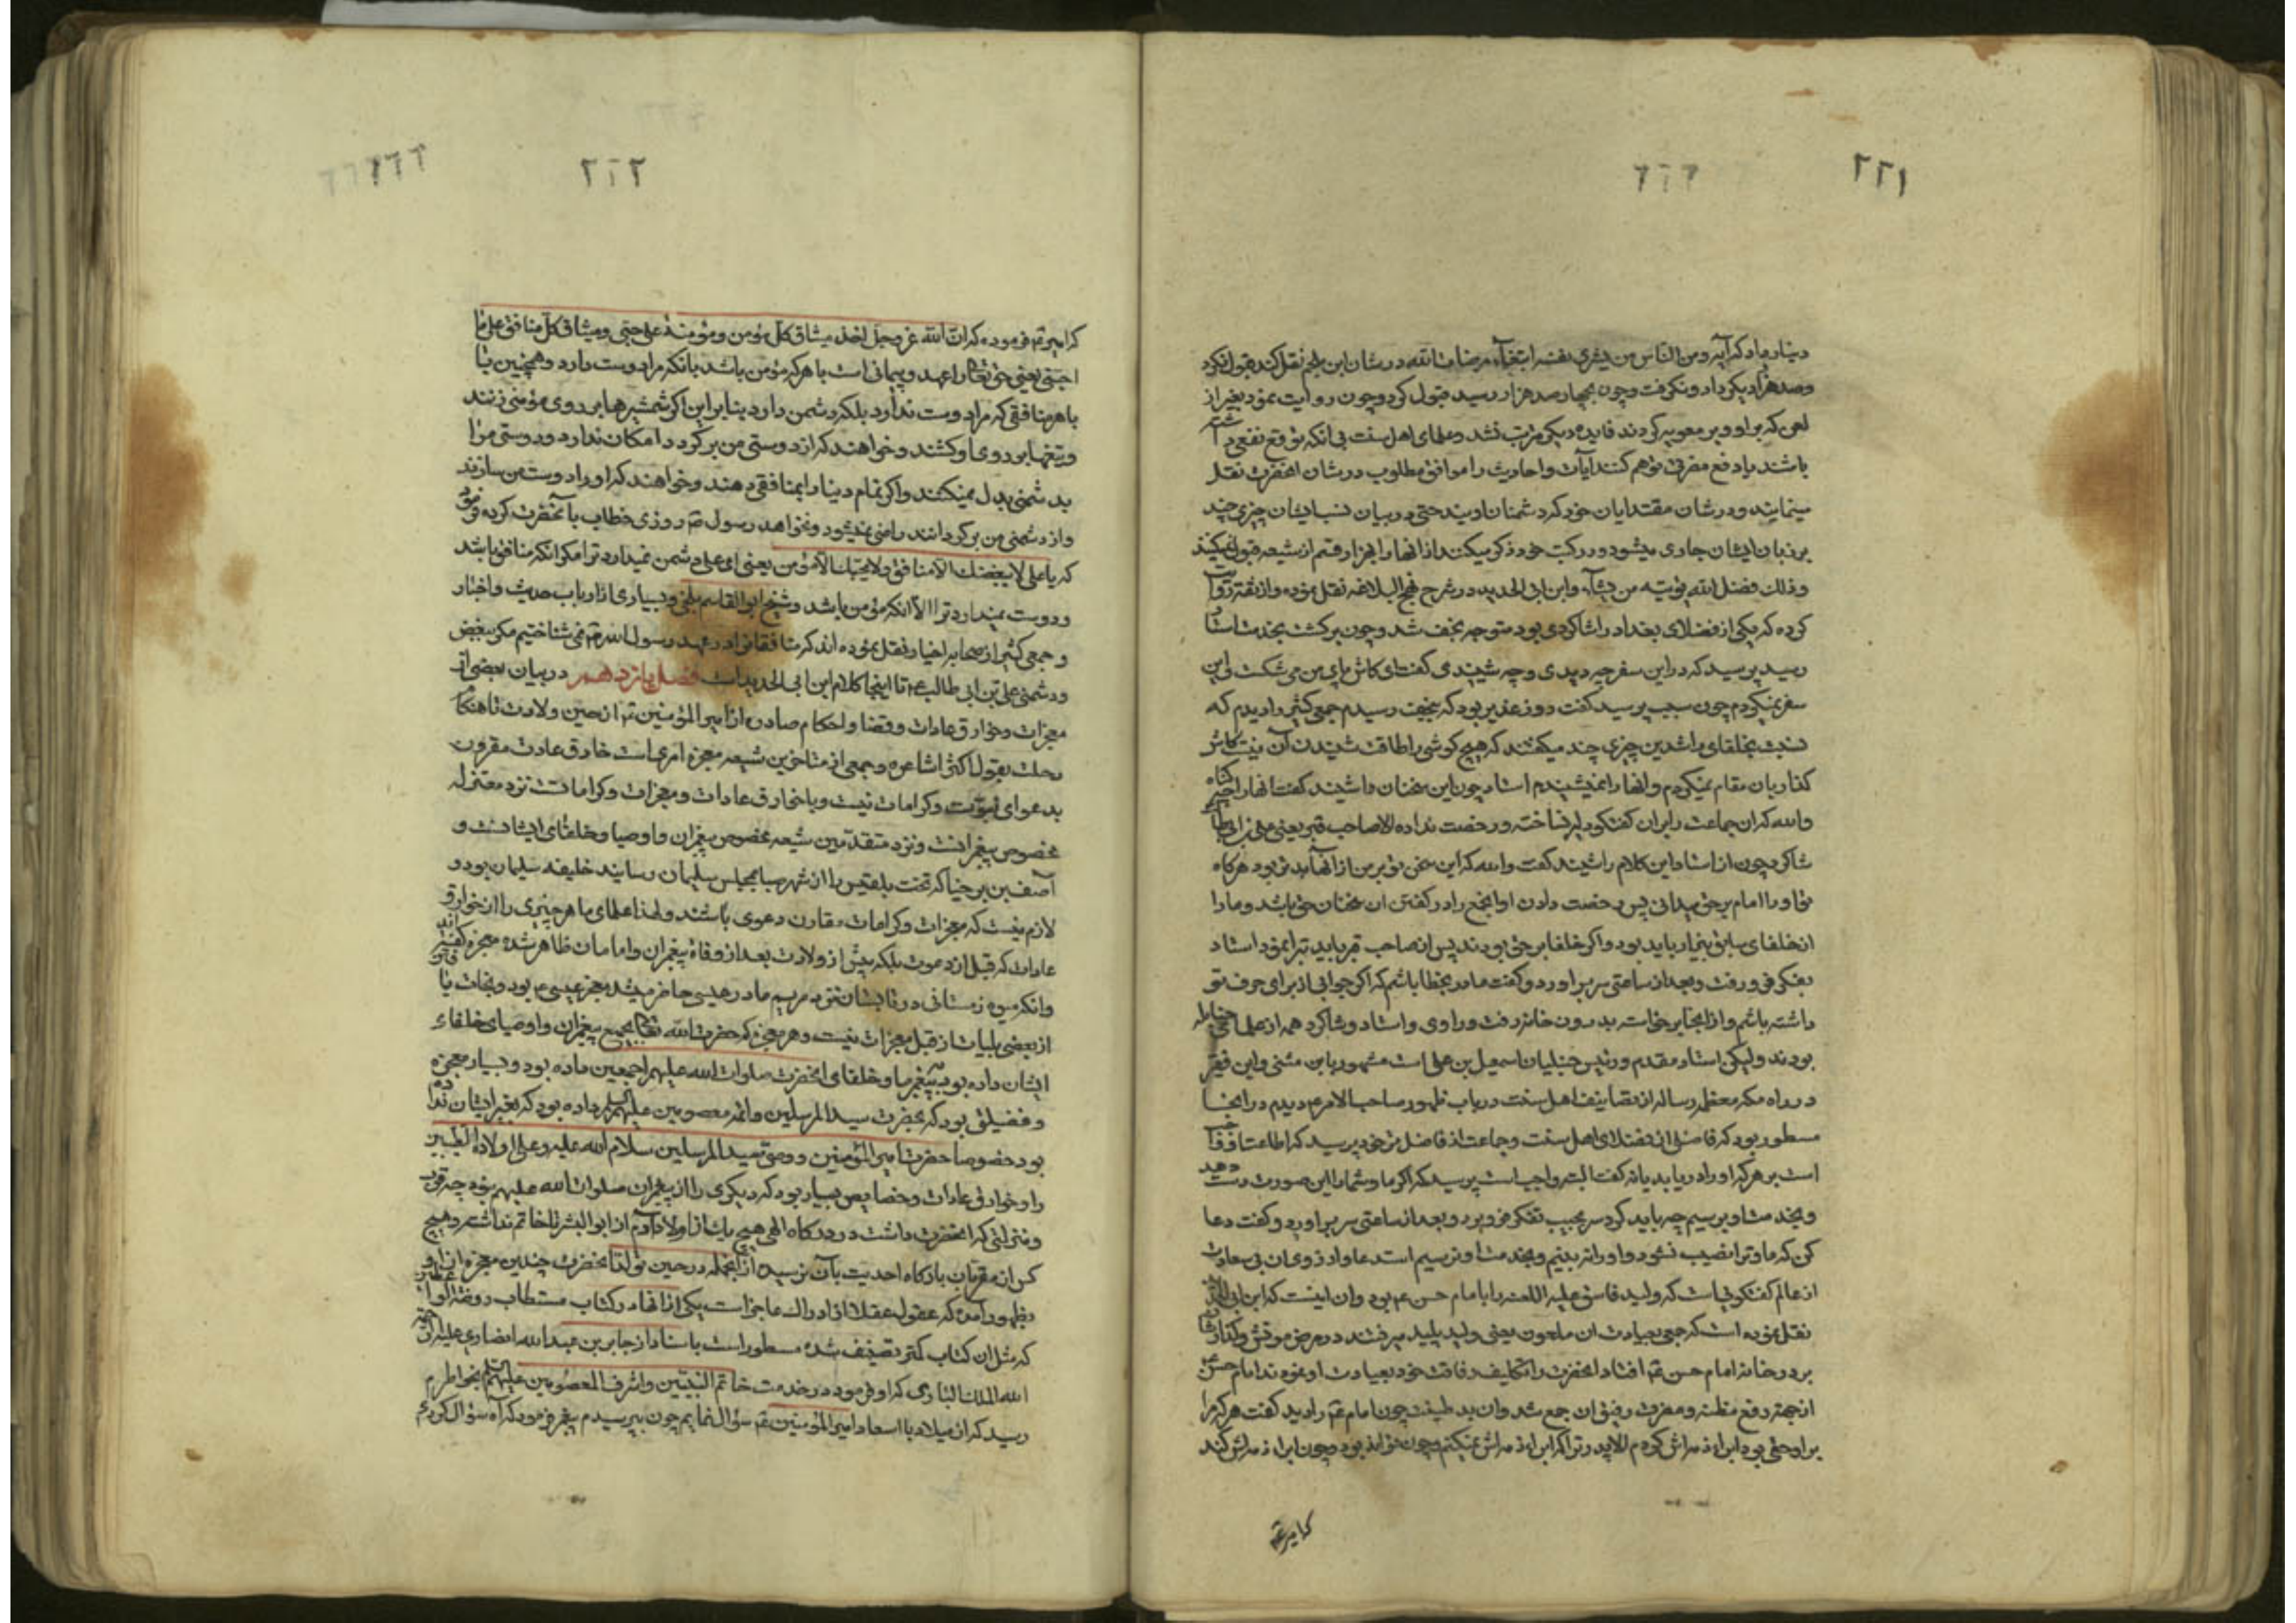 ٢٢١
دینار داد که آیه ومن الناس من یشری نفسه ابتغاء مرضات الله در شان ابن ملجم نقل کند قبول نکرد
وصد هزار دیکر داد ونکرفت وچون بچهار صد هزار رسید قبول کرد وچون روایت نمود بغیر از
لعن که بر او وبر معویه کردند فایده دیکر مرتب نشد وعلمای اهل سنت بی انکه توقع نفعی داشته
باشند یا دفع مضرتی توهم کنند آیات واحادیث را موافق مطلوب در شان انحضرت نقل
مینمایند ودر شان مقتدایان خود که دشمنان اویند حتی در بیان نسب ایشان چیزی چند
بر زبان ایشان جاری میشود ودر کتب خود ذکر میکنند از انها را هزار قسم از شیعه قبول نمیکنند
وذلک فضل الله یؤتیه من یشآء وابن ابی الحدید در شرح نهج البلاغه نقل نموده واز ثقه روایت
کرده که یکی از فضلای بغداد را شاکردی بود متوجه نجف شد وچون برکشت بخدمت استاد
رسید پرسید که در این سفر چه دیدی وچه شنیدی کفت ای کاش پای من می شکست واین
سفر نمیکردم چون سبب پرسید کفت روز غدیر بود که بنجف رسیدم جمعی کثیر را دیدم که
نسبت بخلفای راشدین چیزی چند میکفتند که هیچ کوشی را طاقت شنیدن آن نیست کاش
کذار بان مقام نمیکردم وانها را نمیشنیدم استاد چون این سخنان را شنید کفت انها را چه کناه
والله که ان جماعت را بران کفتکو دلیر نساخته ورخصت نداده الا صاحب قبر یعنی علی بن ابی طالب
شاکرد چون از استاد این کلام را شنید کفت والله که این سخن تو بر من از انها بدتر بود هرکاه
تو او را امام برحق میدانی پس رخصت دادن او انجمع را در کفتن ان سخنان حق باشد وما را
از خلفای سابق بیزار باید بود واکر خلفا برحق بودند پس از صاحب قبر باید تبرا نمود استاد
بفکر فرو رفت وبعد از ساعتی سر بر اورد وکفت مادر بخطا باشم که اکر جوابی از برای حرف تو
داشته باشم واز انجا برخاسته بدرون خانه رفت وراوی واستاد وشاکرد همه از علمای حنابله
بودند ولیکن استاد مقدم ورئیس حنبلیان اسمعیل بن علی است مشهور بابن مثنی واین فقیر
در راه مکه معظمه رساله از تصانیف اهل سنت در باب ظهور صاحب الامر دیدم در انجا
مسطور بود که فاضلی از فضلای اهل سنت وجماعت از فاضل تر خود پرسید که اطاعت او واجب
است بر هر که او را دریابد یا نه کفت البته واجب است پرسید که اکر ما وشما را این صورت دست دهد
وبخدمت او برسیم چه باید کرد سر بجیب تفکر فرو برد وبعد از ساعتی سر بر اورد وکفت دعا
کن که ما وترا نصیب نشود واو را نه بینیم وبخدمت او نرسیم استدعا وارزوی ان بی سعادت
از عالم کفتکوئیست که ولید فاسق علیه اللعنه را با امام حسن ع بود وان اینست که ابن ابی الحدید
نقل نموده است که جمعی بعیادت ان ملعون یعنی ولید پلید میرفتند در مرض موتش وکذارشان
بر در خانه امام حسن افتاد انحضرت را تکلیف رفاقت خود بعیادت او نمودند امام حسن
از جهة دفع مظنه ومضرت رفیق ان جمع شد وان بد طینت چون امام را دید کفت هر که مرا
بر او حقی بود ابراء ذمه اش کردم الا پدر ترا که ابراء ذمه اش نمیکنم
که امیر
٢٢٢
که امیر فرموده که ان الله عز وجل اخذ میثاق کل مؤمن ومؤمنة علی حبی ومیثاق کل منافق علی
یعنی حق تعالی را عهد وپیمانی است با هر که مؤمن باشد بانکه مرا دوست دارد وهمچنین
با هر منافقی که مرا دوست ندارد بلکه دشمن دارد بنابراین اکر شمشیرها بر روی مؤمنی زنند
وتیغها بر روی او کشند وخواهند که از دوستی من برکردد امکان ندارد ودوستی مرا
بدشمنی بدل نمیکنند واکر تمام دنیا را بمنافقی دهند وخواهند که او را دوست من سازند
واز دشمنی من برکردانند راضی نمیشود ونخواهد رسول روزی خطاب بآنحضرت کرده فرمود
که یا علی لا یبغضک الا منافق ولا یحبک الا مؤمن یعنی ای علی دشمن نمیدارد ترا مکر انکه منافق باشد
ودوست نمیدارد ترا الا انکه مؤمن باشد وشیخ ابو القاسم بلخی وبسیاری از ارباب حدیث واخبار
وجمعی کثیر از صحابه اخیار نقل نموده اند که منافقانرا در عهد رسول الله نمی شناختیم مکر ببغض
ودشمنی علی بن ابی طالب تا اینجا کلام ابن ابی الحدید است فصل یازدهم در بیان بعضی از
معجزات وخوارق عادات وقضا واحکام صادره از امیر المؤمنین از حین ولادت تا هنکام
رحلت بقول اکثر اشاعره وجمعی از متاخرین شیعه معجزه امری است خارق عادت مقرون
بدعوای نبوت وکرامات نیست وباخارق عادات ومعجزات وکرامات نزد معتزله
مخصوص پیغمبرانست ونزد متقدمین شیعه مخصوص پیغمبران واوصیا وخلفای ایشانست و
آصف بن برخیا که تخت بلقیس را از شهر سبا بمجلس سلیمان رسانید خلیفه سلیمان بود و
لازم نیست که معجزات وکرامات مقارن دعوی باشند ولهذا علمای ما هر چیزی را از خوارق
عادات که قبل از دعوت بلکه پیش از ولادت بعد از وفاة پیغمبران وامامان ظاهر شده معجزه کفته اند
وانکه میوه زمستانی در تابستان نزد مریم مادر عیسی حاضر میشد معجز عیسی بود ونجات
از بعضی بلیات از قبل معجزات نیست وهر معجزه که حضرت الله تعالی بجمیع پیغمبران واوصیای خلفاء
ایشان داده بود به پیغمبر ما وخلفای انحضرت صلوات الله علیهم اجمعین داده بود وبسیار معجزه
وفضیلتی بود که بحضرت سید المرسلین وائمه معصومین علیهم السلام داده بود که بغیر ایشان نداده
بود خصوصا حضرت امیر المؤمنین ووصی سید المرسلین سلام الله علیه وعلی اولاده الطیبین
را وخوارق عادات وخصایص بسیار بود که دیکری را از پیغمبران صلوات الله علیهم نبود چه قرب
ومنزلتی که انحضرت داشت در درکاه الهی هیچ یک از اولاد آدم از ابو البشر تا خاتم نداشته وهیچ
کس از مقربان بارکاه احدیت بآن نرسید از انجمله در حین تولد انحضرت چندین معجزه از او
بظهور آمد که عقول عقلا از ادراک عاجز است یکی از انها در کتاب مستطاب روضة الواعظین
که مثل ان کتاب کمتر تصنیف شده مسطور است باسناد از جابر بن عبد الله انصاری علیه رحمة
الله الملک الباری که او فرمود در خدمت خاتم النبیین واشرف المعصومین علیهم السلام بخاطرم
رسید که از میلاد با اسعاد امیر المؤمنین سؤال نمایم چون بپرسیدم پیغمبر فرمود که آه سؤال کردی